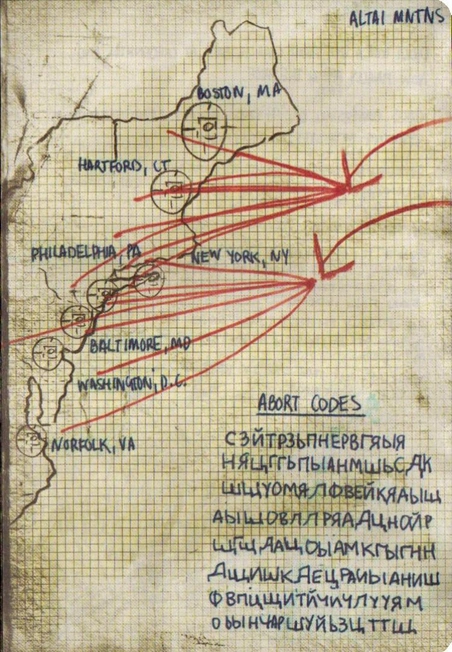 ALTAI MNTNS
BOSTON, MA
HARTFORD, CT
PHILADELPHIA, PA
NEW YORK, NY
BALTIMORE, MD
WASHINGTON, D.C.
NORFOLK, VA
ABORT CODES
СЗЙТРЗЬПНЕРВГЯЫЯ
НЯЦГГЬПЫАНМШЬСДК
ШЩУОМЯЛФВЕЙКЯАЫЩ
АЫШОВЛЛРЯАДЦНОЙР
ШГЩДАЦОЫАМКГЫГНН
ДЩИШКДЕЦРАИЫАНИШ
ФВПЦЩИТЙЧИЧЛУУЯМ
ОЫЫНЧАРШУЙЬЗЦТТЩ